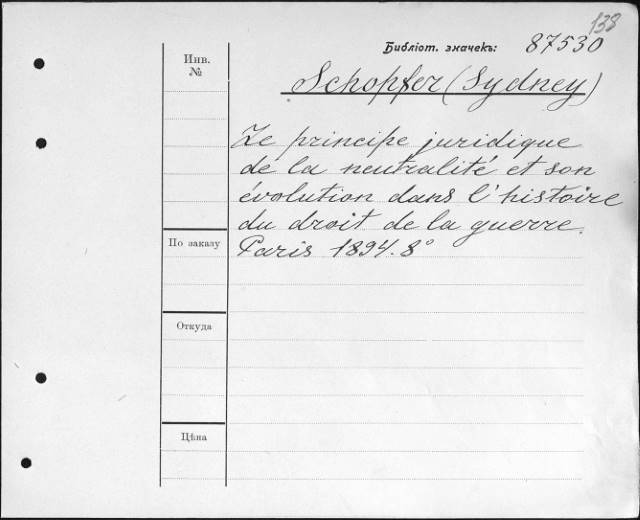 138
Библіот. значекъ: 87530
Инв. №
Schopfer (Sydney)
Le principe juridique
de la neutralité et son
évolution dans l'histoire
du droit de la guerre.
Paris 1894. 8°
По заказу
Откуда
Цѣна